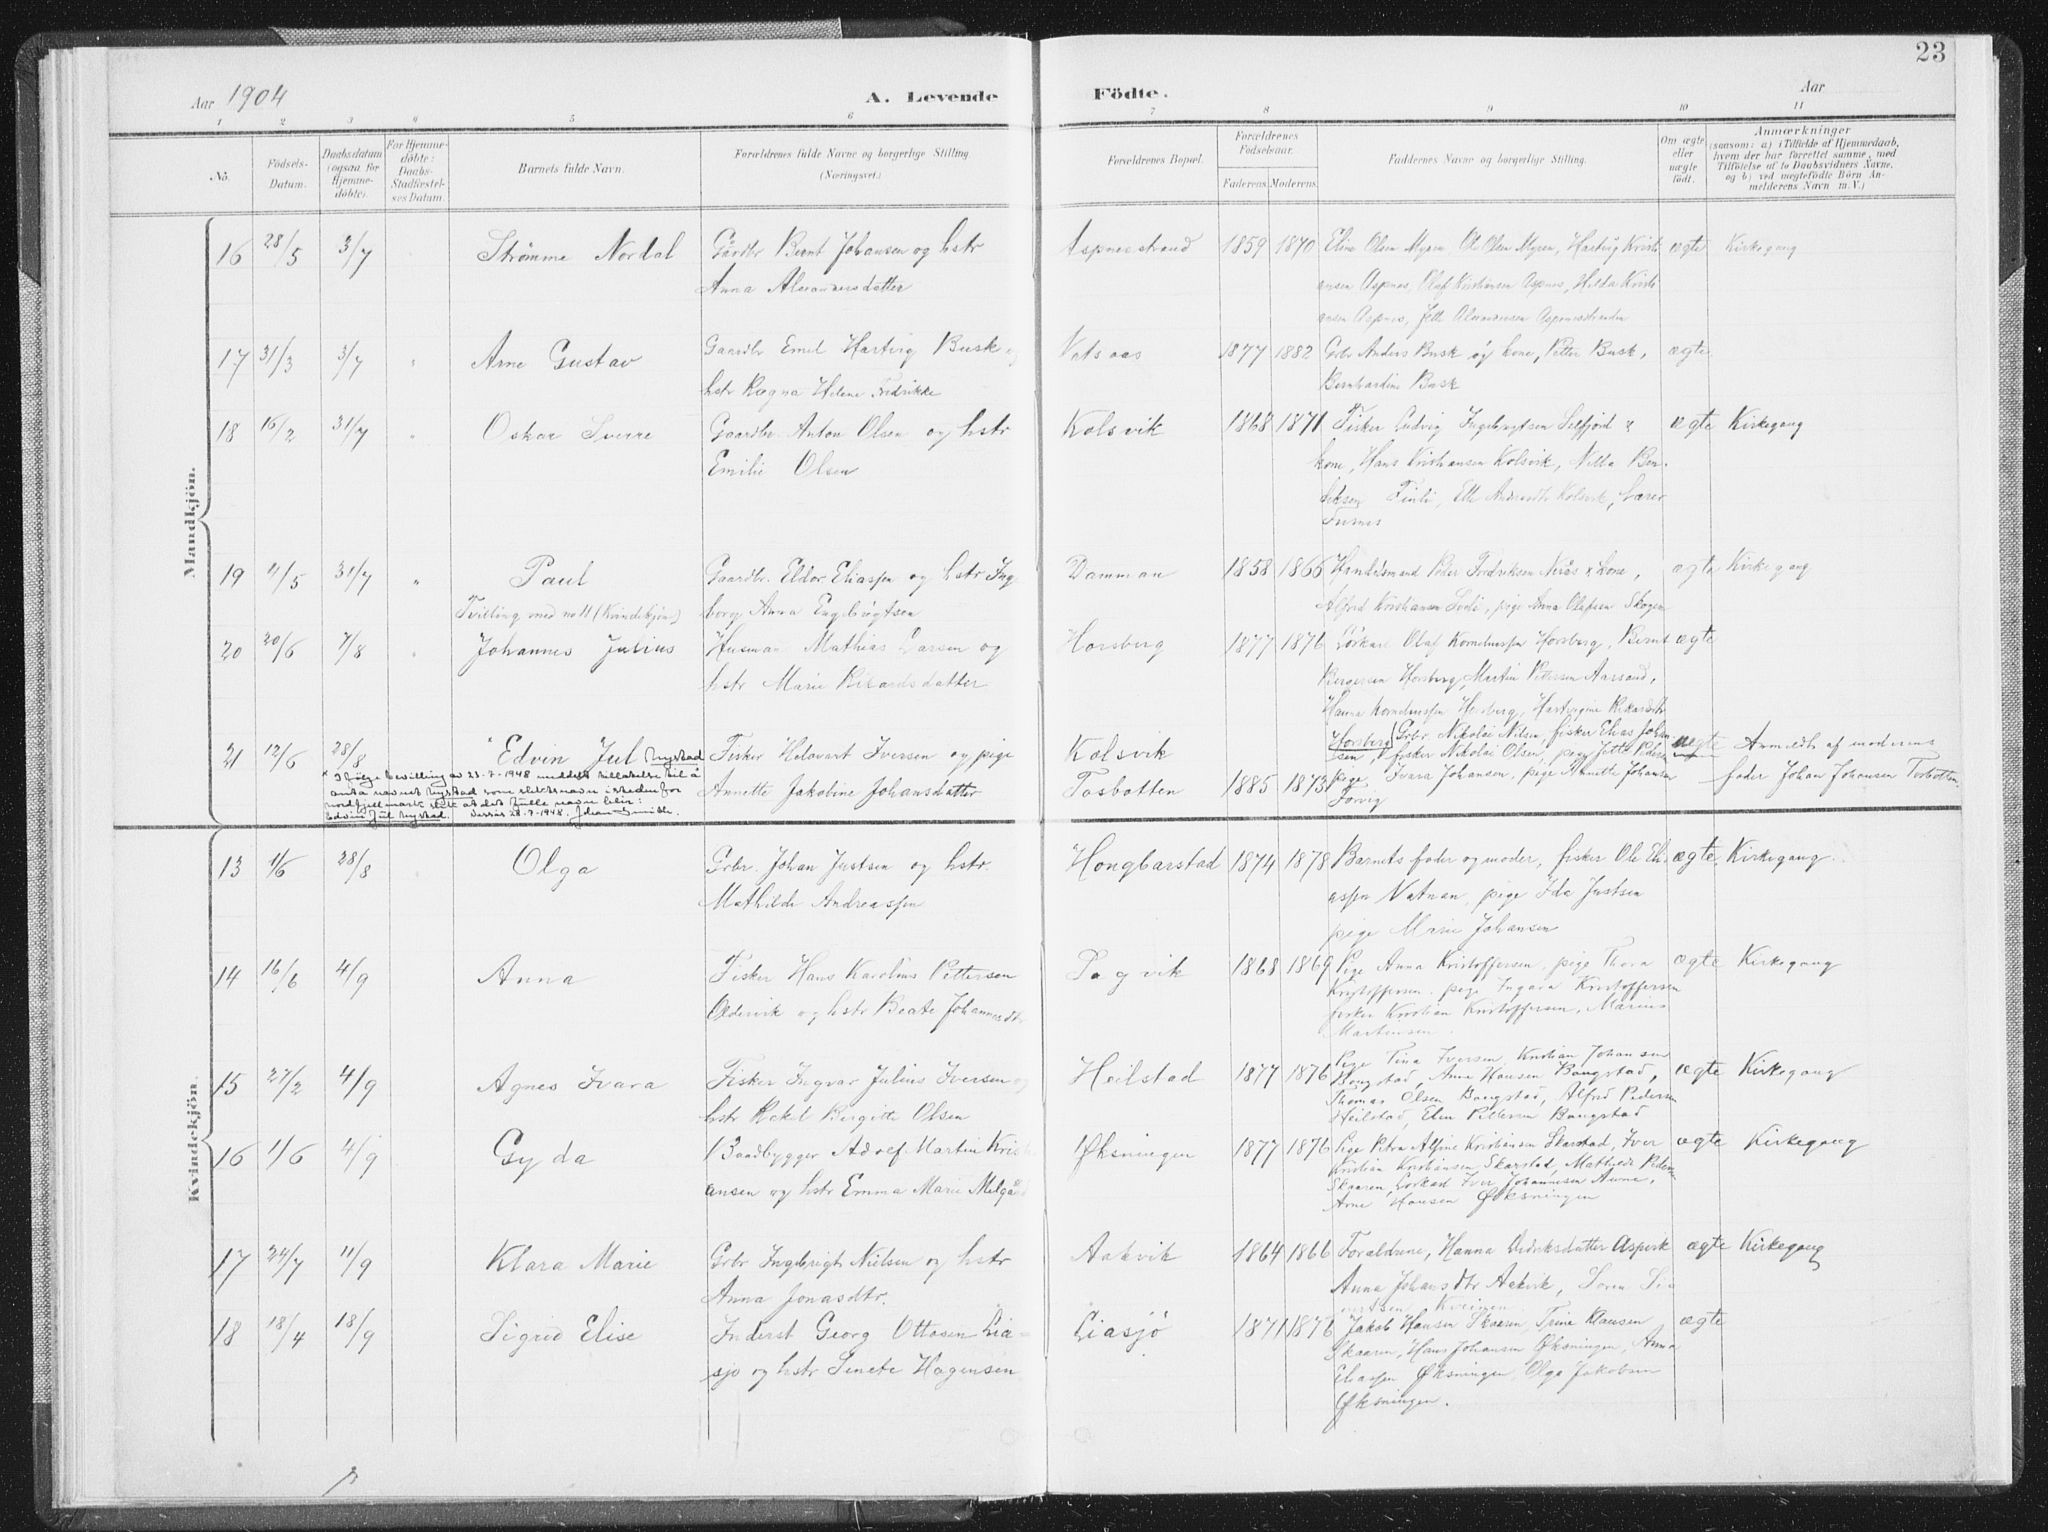 23
Aar 1904
A. Levende Födte.
Aar
1 2 3 4 5 6 7 8 9 10 11
No.
Födsels-Datum.
Daabsdatum (ogsaa for Hjemmedöbte).
For Hjemmedöbte: Daabs-Stadfæstelses Datum.
Barnets fulde Navn.
Forældrenes fulde Navne og borgerlige Stilling (Næringsvei.)
Forældrenes Bopæl.
Forældrenes Födselsaar.
Faderens Moderens
Faddernes Navne og borgerlige Stilling.
Om ægte eller uægte födt.
Anmærkninger
(saasom: a) i Tilfælde af Hjemmedaab, hvem der har forrettet samme, med Tilföielse af to Daabsvidners Navne, og b) ved uegtefödte Börn Anmelderens Navn m. V.)
Mandkjön.
16 28/5 3/7 Strømme Nordal Gårdbr Bernt Johansen og hstr Aspnesstrand 1859 1870 Eline Olsen Myren, Ole Olsen Myren, Hartvig Kristi ægte Kirkegang
Anna Alexandersdatter ansen Aspnes, Olaf Kristiansen Aspnes, Hilda Kristi
ansen Aspnes, Jette Alexandersen Aspnesstranden
17 31/3 3/7 " Arne Gustav Gaardbr Emil Hartvig Busk og Vatsaas 1877 1882 Grbr Anders Busk og kone, Petter Busk, ægte
hstr Ragna Helene Fredrikke Bernhardine Busk
18 16/2 31/7 " Oskar Sverre Gaardbr. Anton Olsen og hstr Kolsvik 1868 1871 Fisker Ludvig Ingebrigtsen Selfjord & ægte Kirkegang
Emilie Olsen kone, Hans Kristiansen Kolsvik, Nilla Ben-
diksen Finli, Elle Andreasdtr Kolsvik, Lærer
Fusnes
19 11/5 31/7 " Paul Gaardbr. Eldor Eliassen og hstr Ing Damman 1858 1866 Handelsmand Peder Fredriksen Nerås & kone, ægte Kirkegang
Tvilling med no 11 (Kvindekjøn) borg Anna Engebrigtsen Alfred Kristiansen, pige Anna Olafsen Skogen
20 20/6 7/8 " Johannes Julius Husmand Mathias Larsen og Horsberg 1877 1876 Olaf Kornelinssen Horsberg, Bernt ægte
hstr Marie Rikardsdatter Bergersen Horsberg, Martin Pettersen Aarsand,
Hanna Kornelinssen Horsberg, Hartvigine Rikardsdtr
Horsberg
21 12/6 28/8 * Edvin Jul Nystad Fisker Helavart Iversen og pige Kolsvik Grbr. Nikolai Nilsen, fisker Elias Johan uægte Anmeldt af moderens
sen, fisker Nikolai Olsen, pige Jette Peders
Annette Jakobine Johansdatter Tosbotten 1885 1873 pige Ivara Johansen, pige Annette Johansen fader Johan Johansen Tosbotten.
Torvig
* I følge bevilling av 23-7-1948 meddelt tillatelse til å
anta navnet Nystad som slektsnavn i steden for
Nordfjellmark slik at det fulle navn blir:
Edvin Jul Nystad. 28-7-1948. Johan
Kvindekjön.
13 11/6 28/8 Olga Grbr. Johan Justsen og hstr. Hongbarstad 1874 1878 Barnets fader og moder, fisker Ole Eli ægte Kirkegang.
Mathilde Andreassen assen Vatnan, pige Ida Justsen
pige Marie Johansen
14 16/6 4/9 Anna Fisker Hans Karolius Pettersen Tosvik 1868 1869 Pige Anna Kristoffersen, pige Thora ægte Kirkegang
Oldervik og hstr Beate Johannesdtr Kristoffersen, pige Ingara Kristoffersen
fisker Kristian Kristoffersen, Marius
Martinsen.
15 27/2 4/9 Agnes Ivara Fisker Ingvar Julius Iversen og Heilstad 1877 1876 Pige Tina Iversen, Kristian Johansen ægte Kirkegang
hstr Rakel Birgitte Olsen Bongstad, Anne Hansen Bongstad,
Thomas Olsen Bangstad, Alfred Pedersen
Heilstad, Elen Pettersen Bangstad
16 1/6 4/9 Gyda Baadbygger Adolf Martin Kristi Øksningen 1877 1876 Pige Petra Alfine Kristiansen Skarstad, Iver ægte Kirkegang
ansen og hstr Emma Marie Melgård Kristian Kristiansen Skarstad, Mathilde Pedersen
Skaaren, Iver Johannesen Aune,
Arne Hansen Øksningen
17 24/7 11/9 Klara Marie Grbr Ingebrigt Nielsen og hstr Aakvik 1864 1866 Forældrene, Hanna Didriksdatter ægte Kirkegang
Anna Jonasdtr. Anna Johansdtr Aakvik, Soren Si
vertsen
18 18/4 18/9 Sigrid Elise Inderst Georg Ottosen Lia- Liasjø 1871 1876 Jakob Hansen Skaaren, Trine Klausen ægte
sjø og hstr Senete Hagensen Skaaren, Hans Johansen Øksningen, Anna
Eliassen Øksningen, Olga Jakobsen
Øksningen.